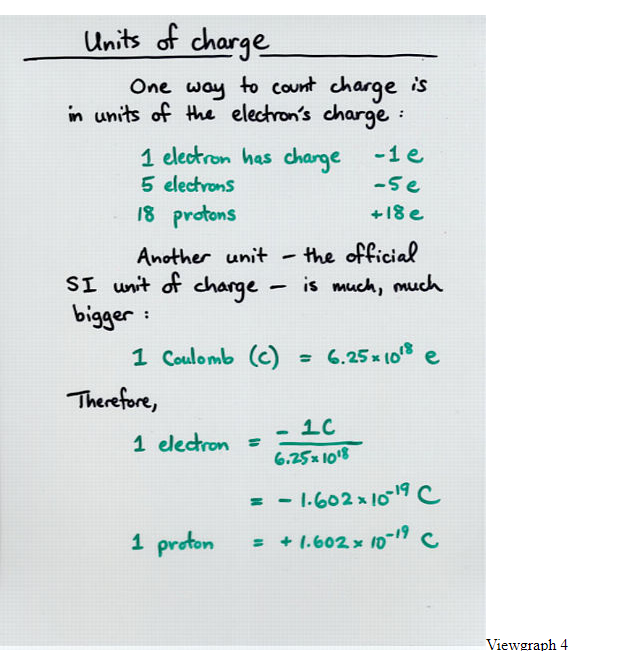 Units of charge
One way to count charge is
in units of the electron's charge :
1 electron has charge -1 e
5 electrons -5 e
18 protons +18 e
Another unit – the official
SI unit of charge – is much, much
bigger :
1 Coulomb (C) = 6.25 × 10¹⁸ e
Therefore,
1 electron = - 1C / 6.25 × 10¹⁸
= - 1.602 × 10⁻¹⁹ C
1 proton = + 1.602 × 10⁻¹⁹ C
Viewgraph 4